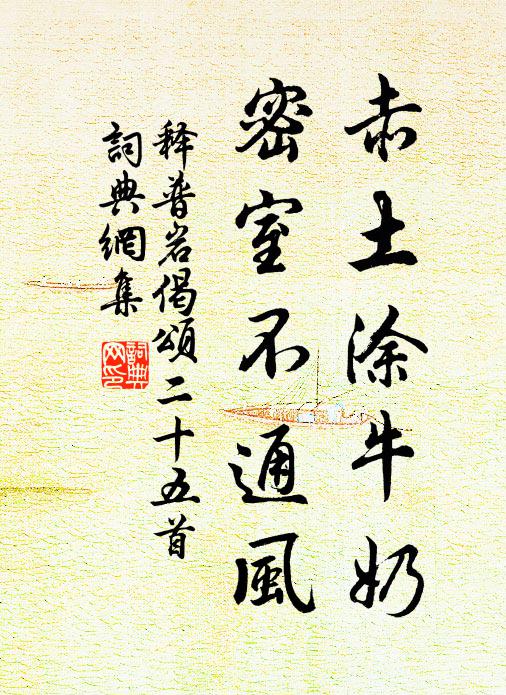 赤土涂牛奶
密室不通風
释普岩偈頌二十五首
詞典網集
詞典网印